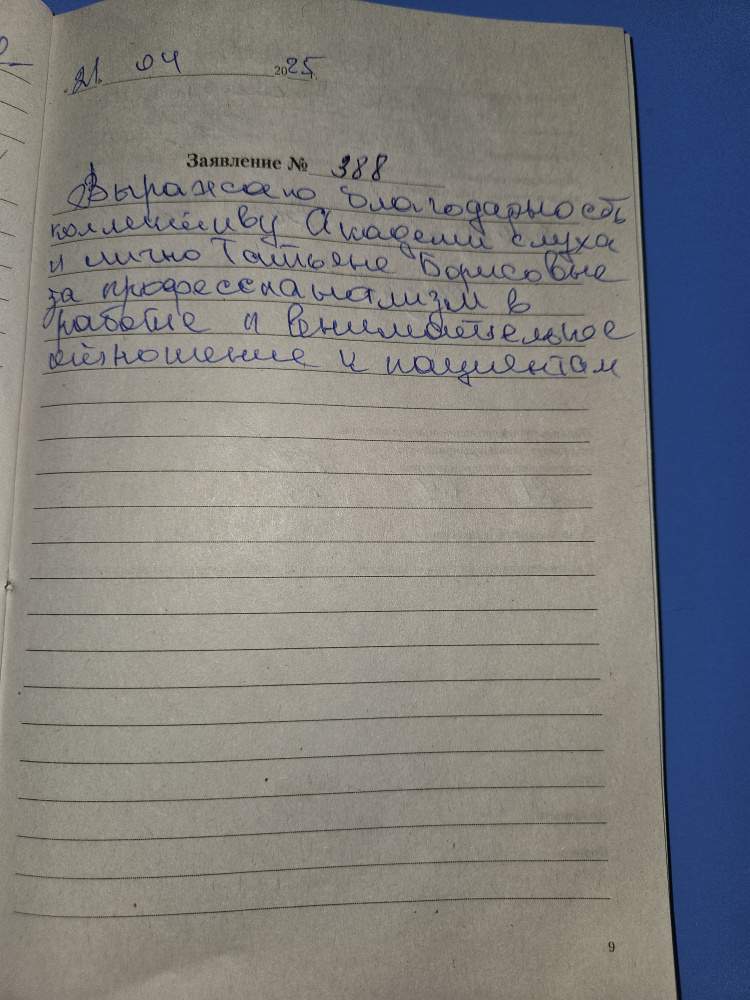 21. 04 2025 г.
Заявление № 388
Выражаю благодарность
коллективу Академии слуха
и лично Татьяне Борисовне
за професснанализм в
работе и внимательное
отношение к пациентам
9